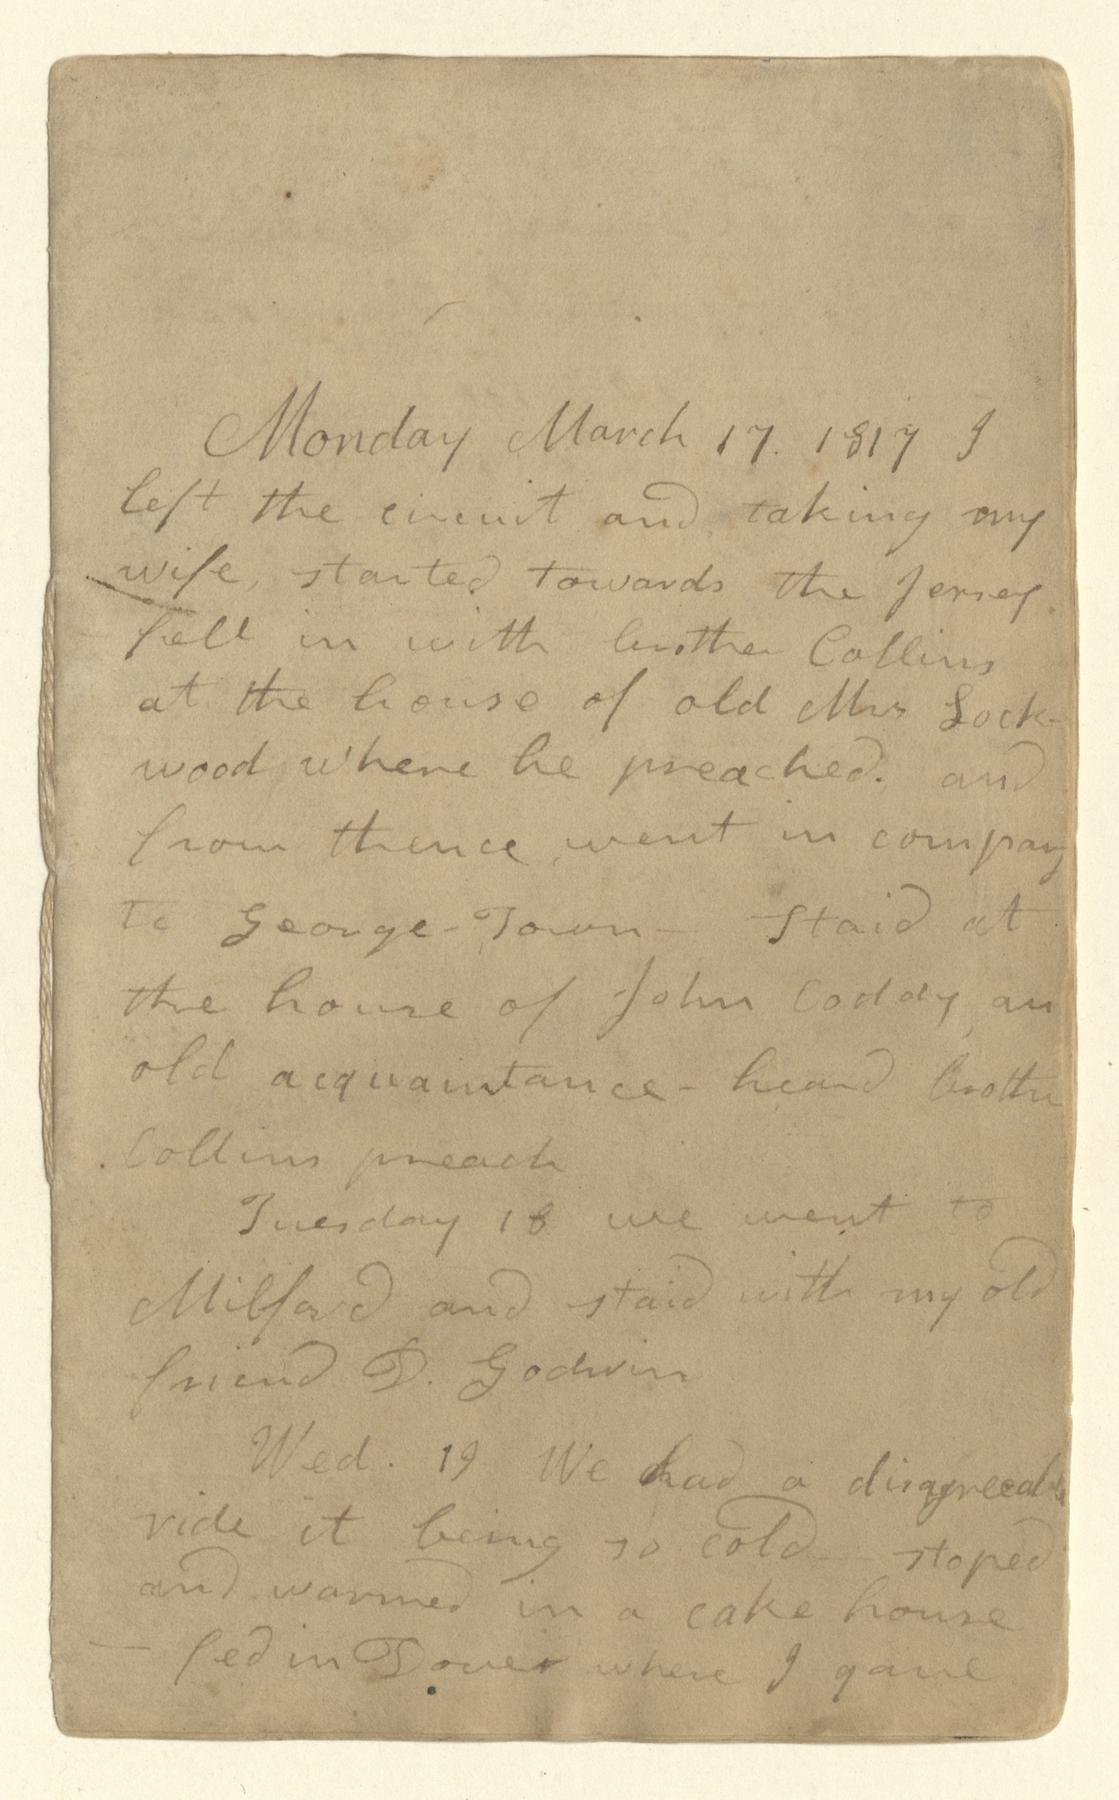 Monday March 17. 1817 I
left the circuit and taking my
wife, started towards the Jersey.
fell in with brother Collins
at the house of old Mrs Lock-
wood where he preached. and
from thence went in company
to George-Town - Staid at
the house of John Coddy, an
old acquaintance - heard brother
Collins preach
Tuesday 18 we went to
Milford and staid with my old
friend D. Godwin
Wed. 19 We had a disagreeable
ride it being so cold - stoped
and warmed in a cake house
- fed in Dover where I gave